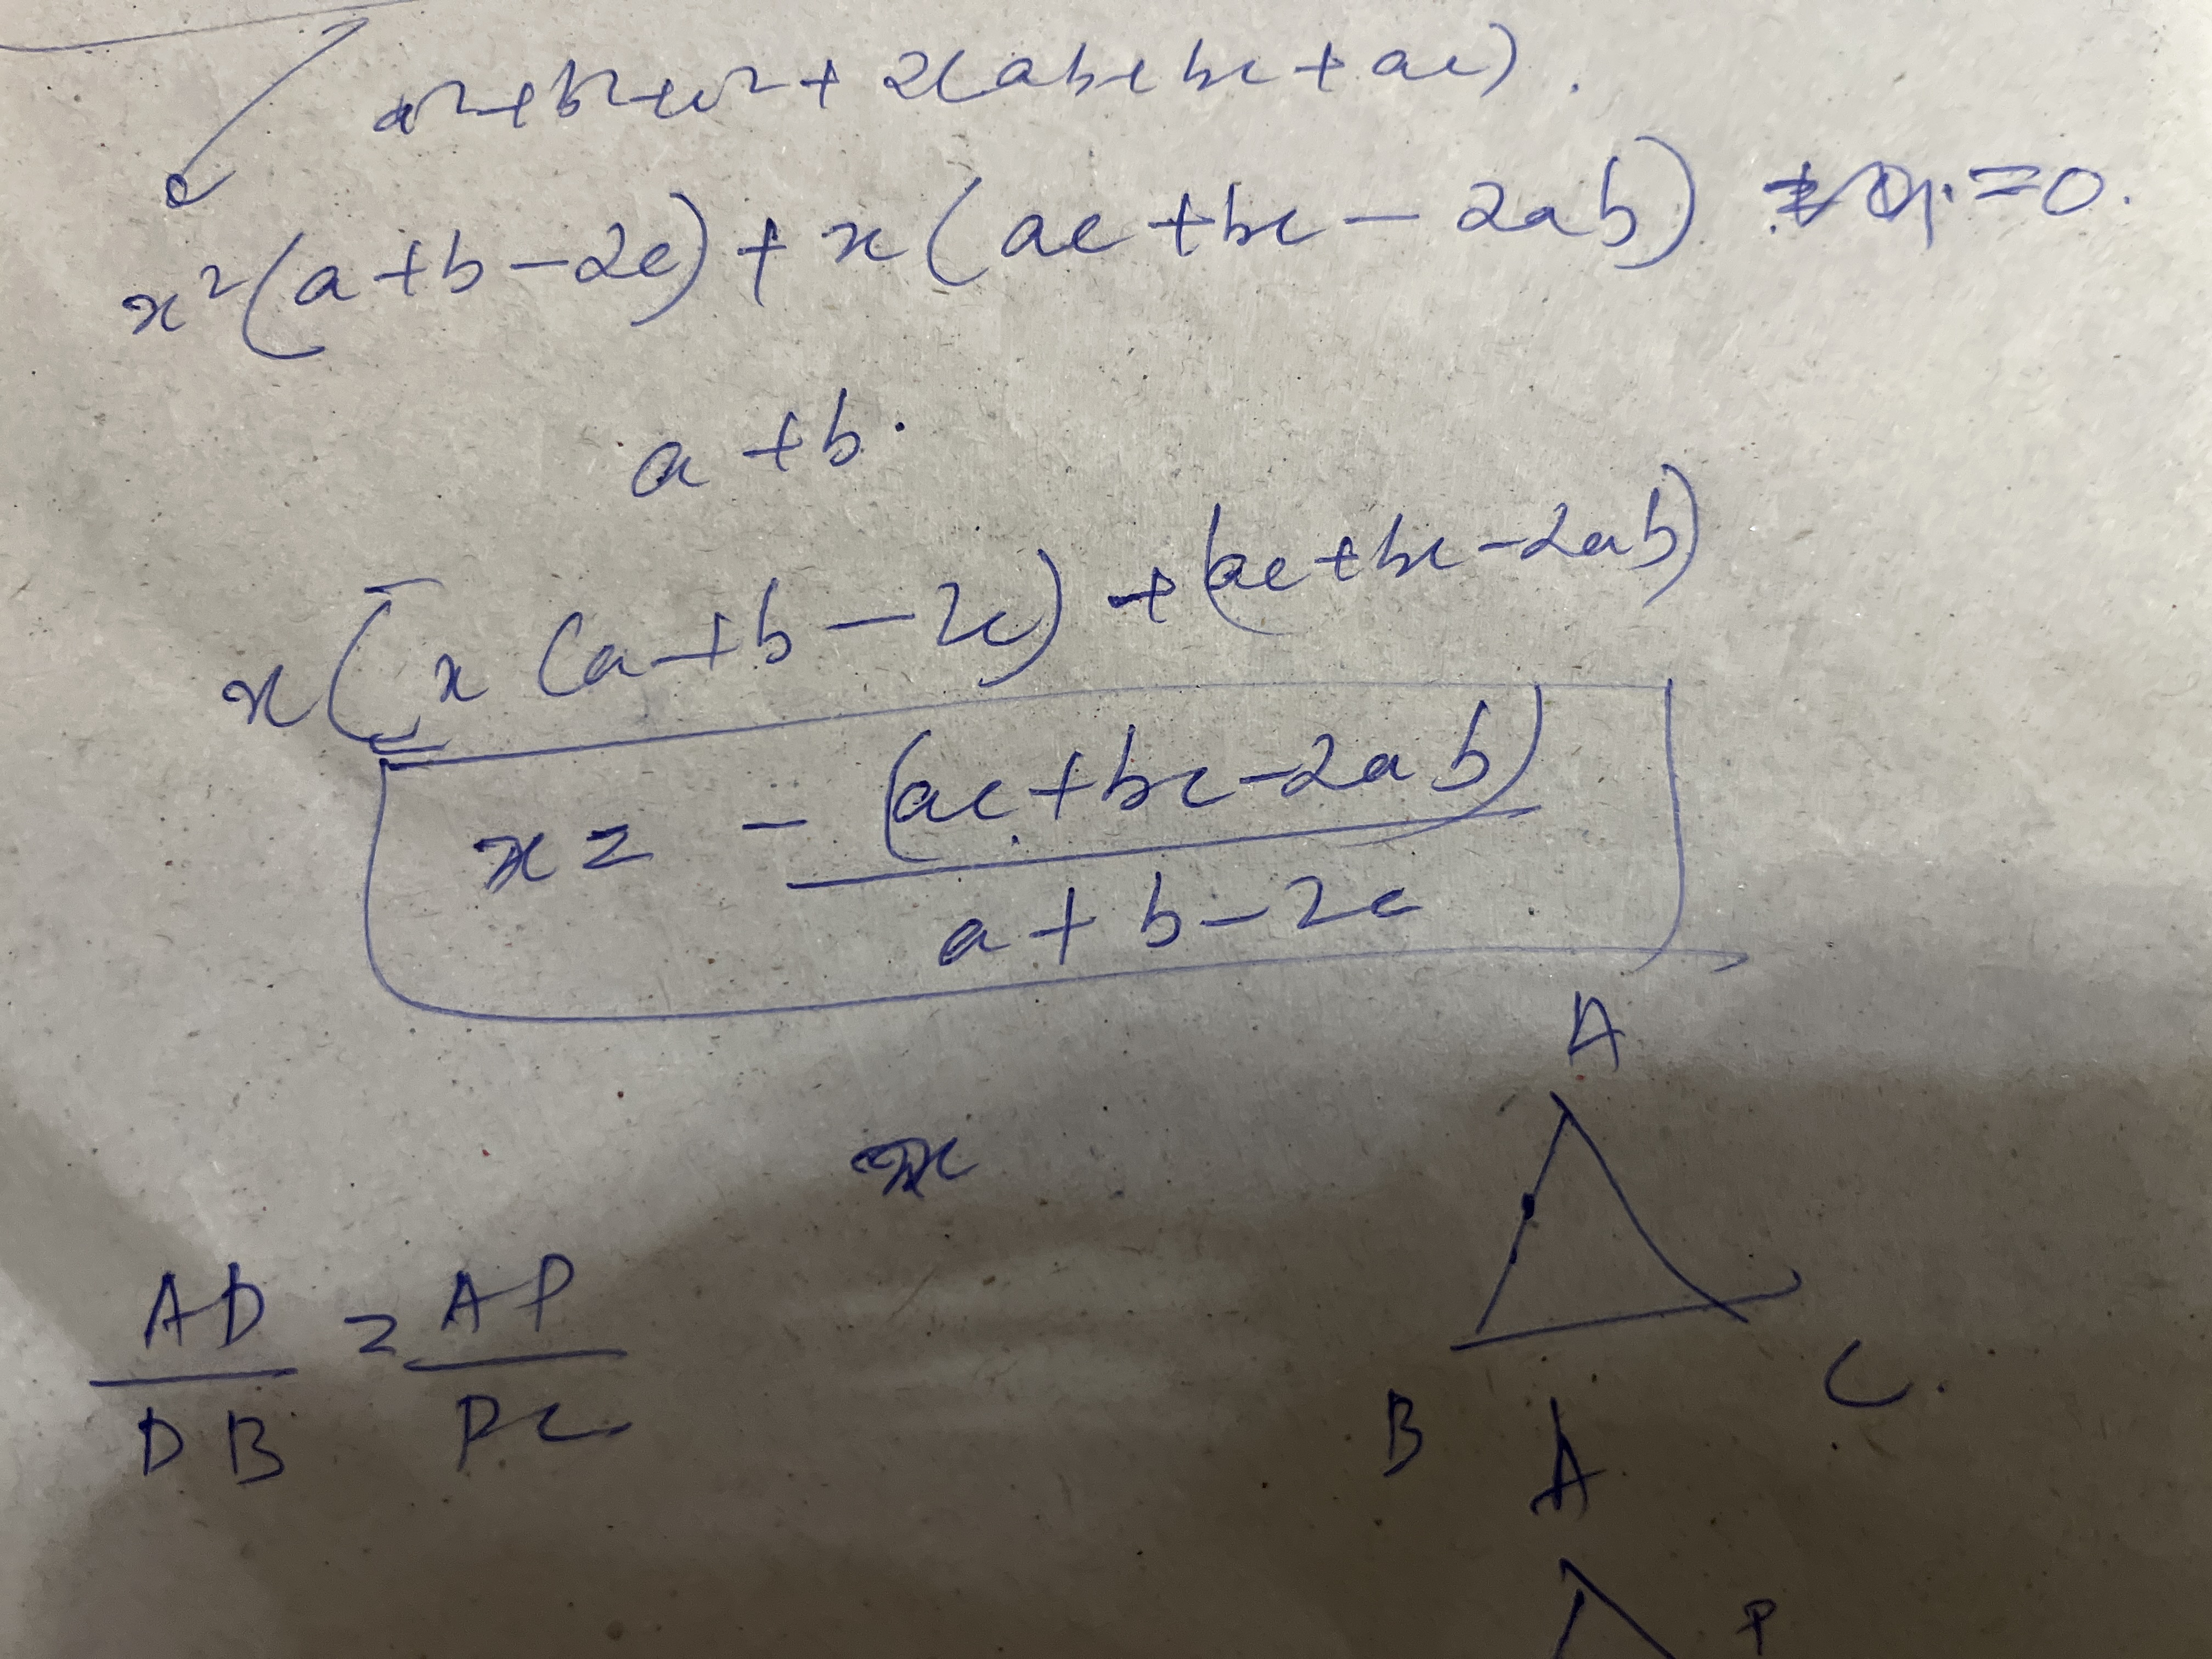 a²+b²+c²+ 2(ab+bc+ac).
x²(a+b-2c)+x(ac+bc-2ab) =0.
a+b.
x(x(a+b-2c)+(ac+bc-2ab)
x= -(ac+bc-2ab)
a+b-2c
A
x
AD = AP
DB PC
B C.
A
P